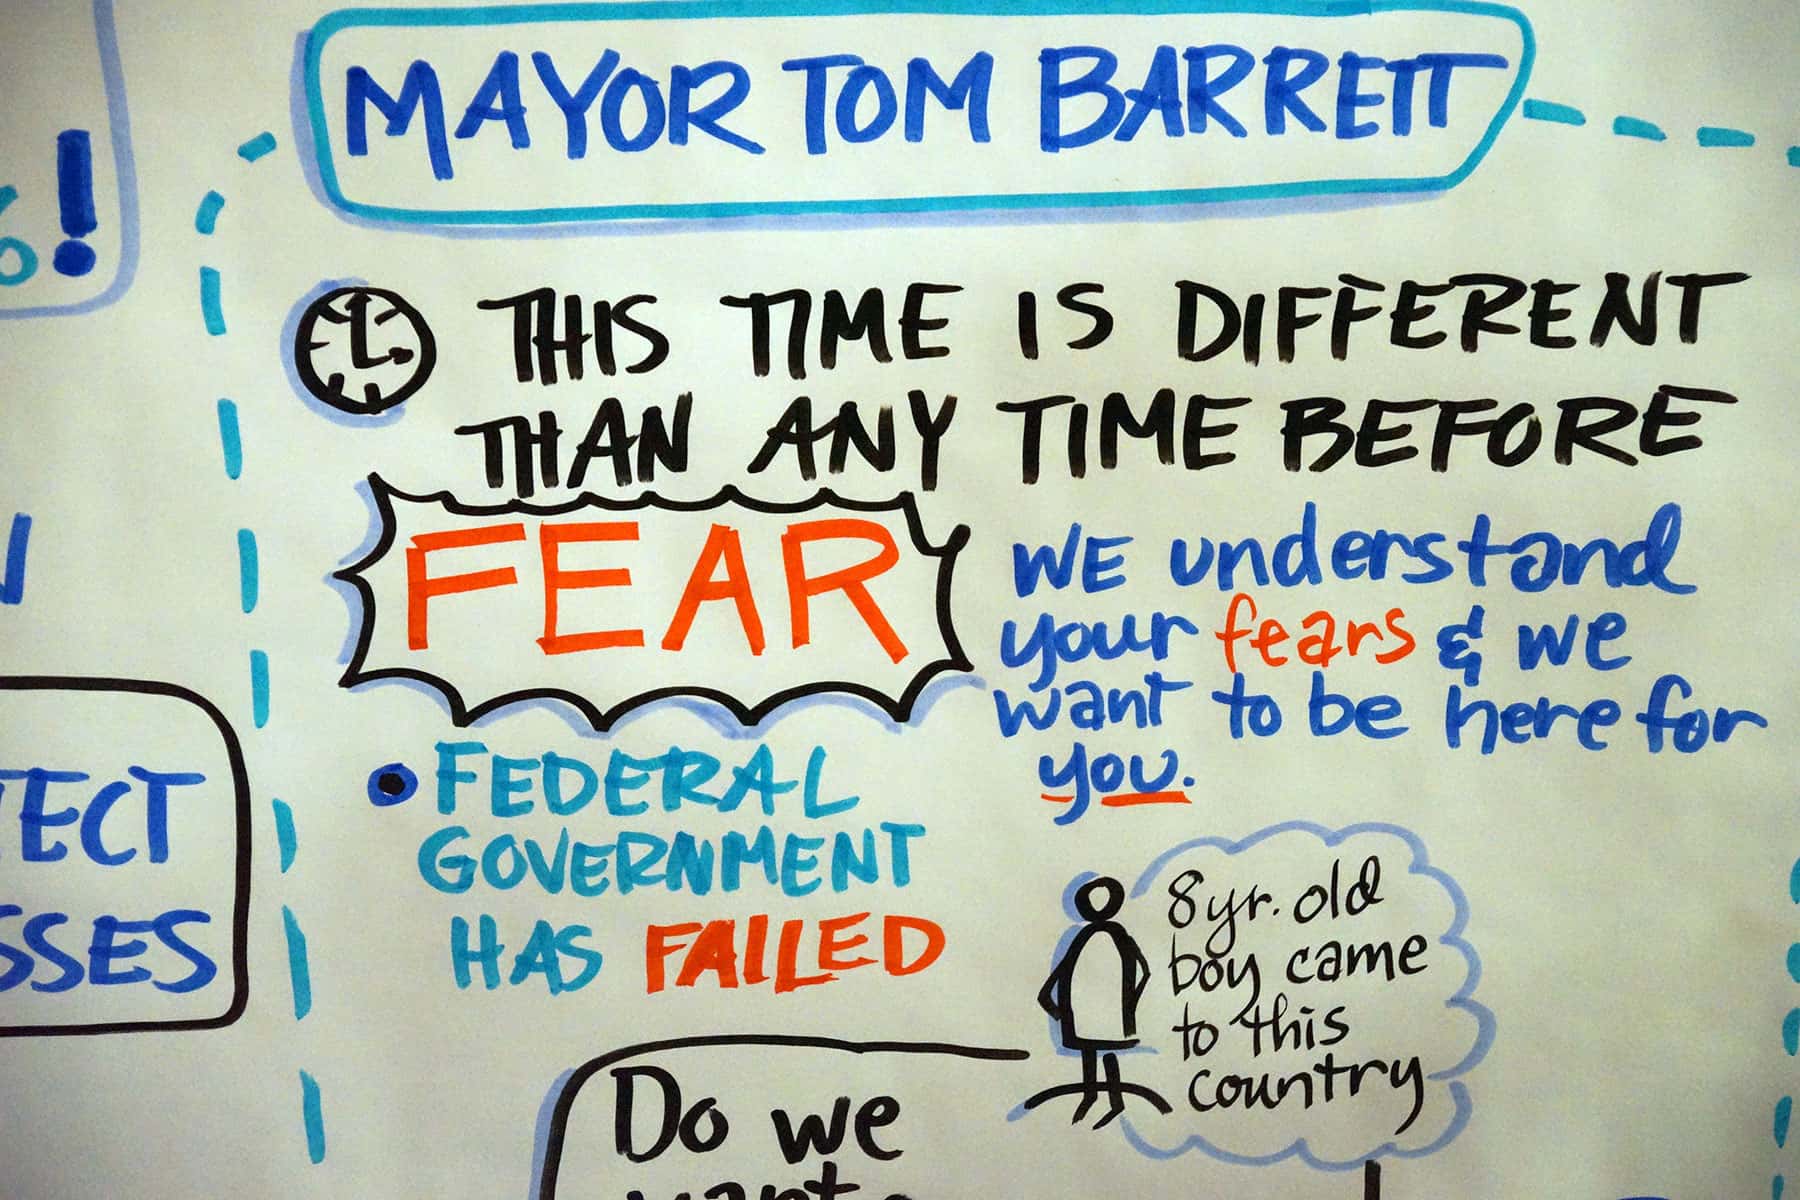 MAYOR TOM BARRETT
!
THIS TIME IS DIFFERENT
THAN ANY TIME BEFORE
FEAR
WE understand
your fears & we
want to be here for
you.
• FEDERAL
GOVERNMENT
HAS FAILED
8 yr. old
boy came
to this
country
Do we
TECT
SSES